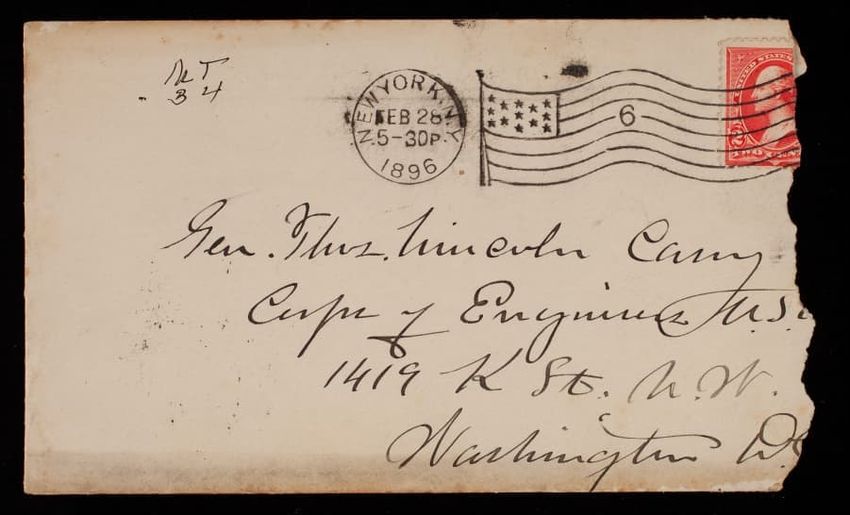 NEW YORK, N.Y.
FEB 28
5-30P
1896
6
UNITED STATES
TWO CEN
34
Gen. Thos. Lincoln Casey
Corps of Engineers U.S.
1419 K St. N.W.
Washington D.C